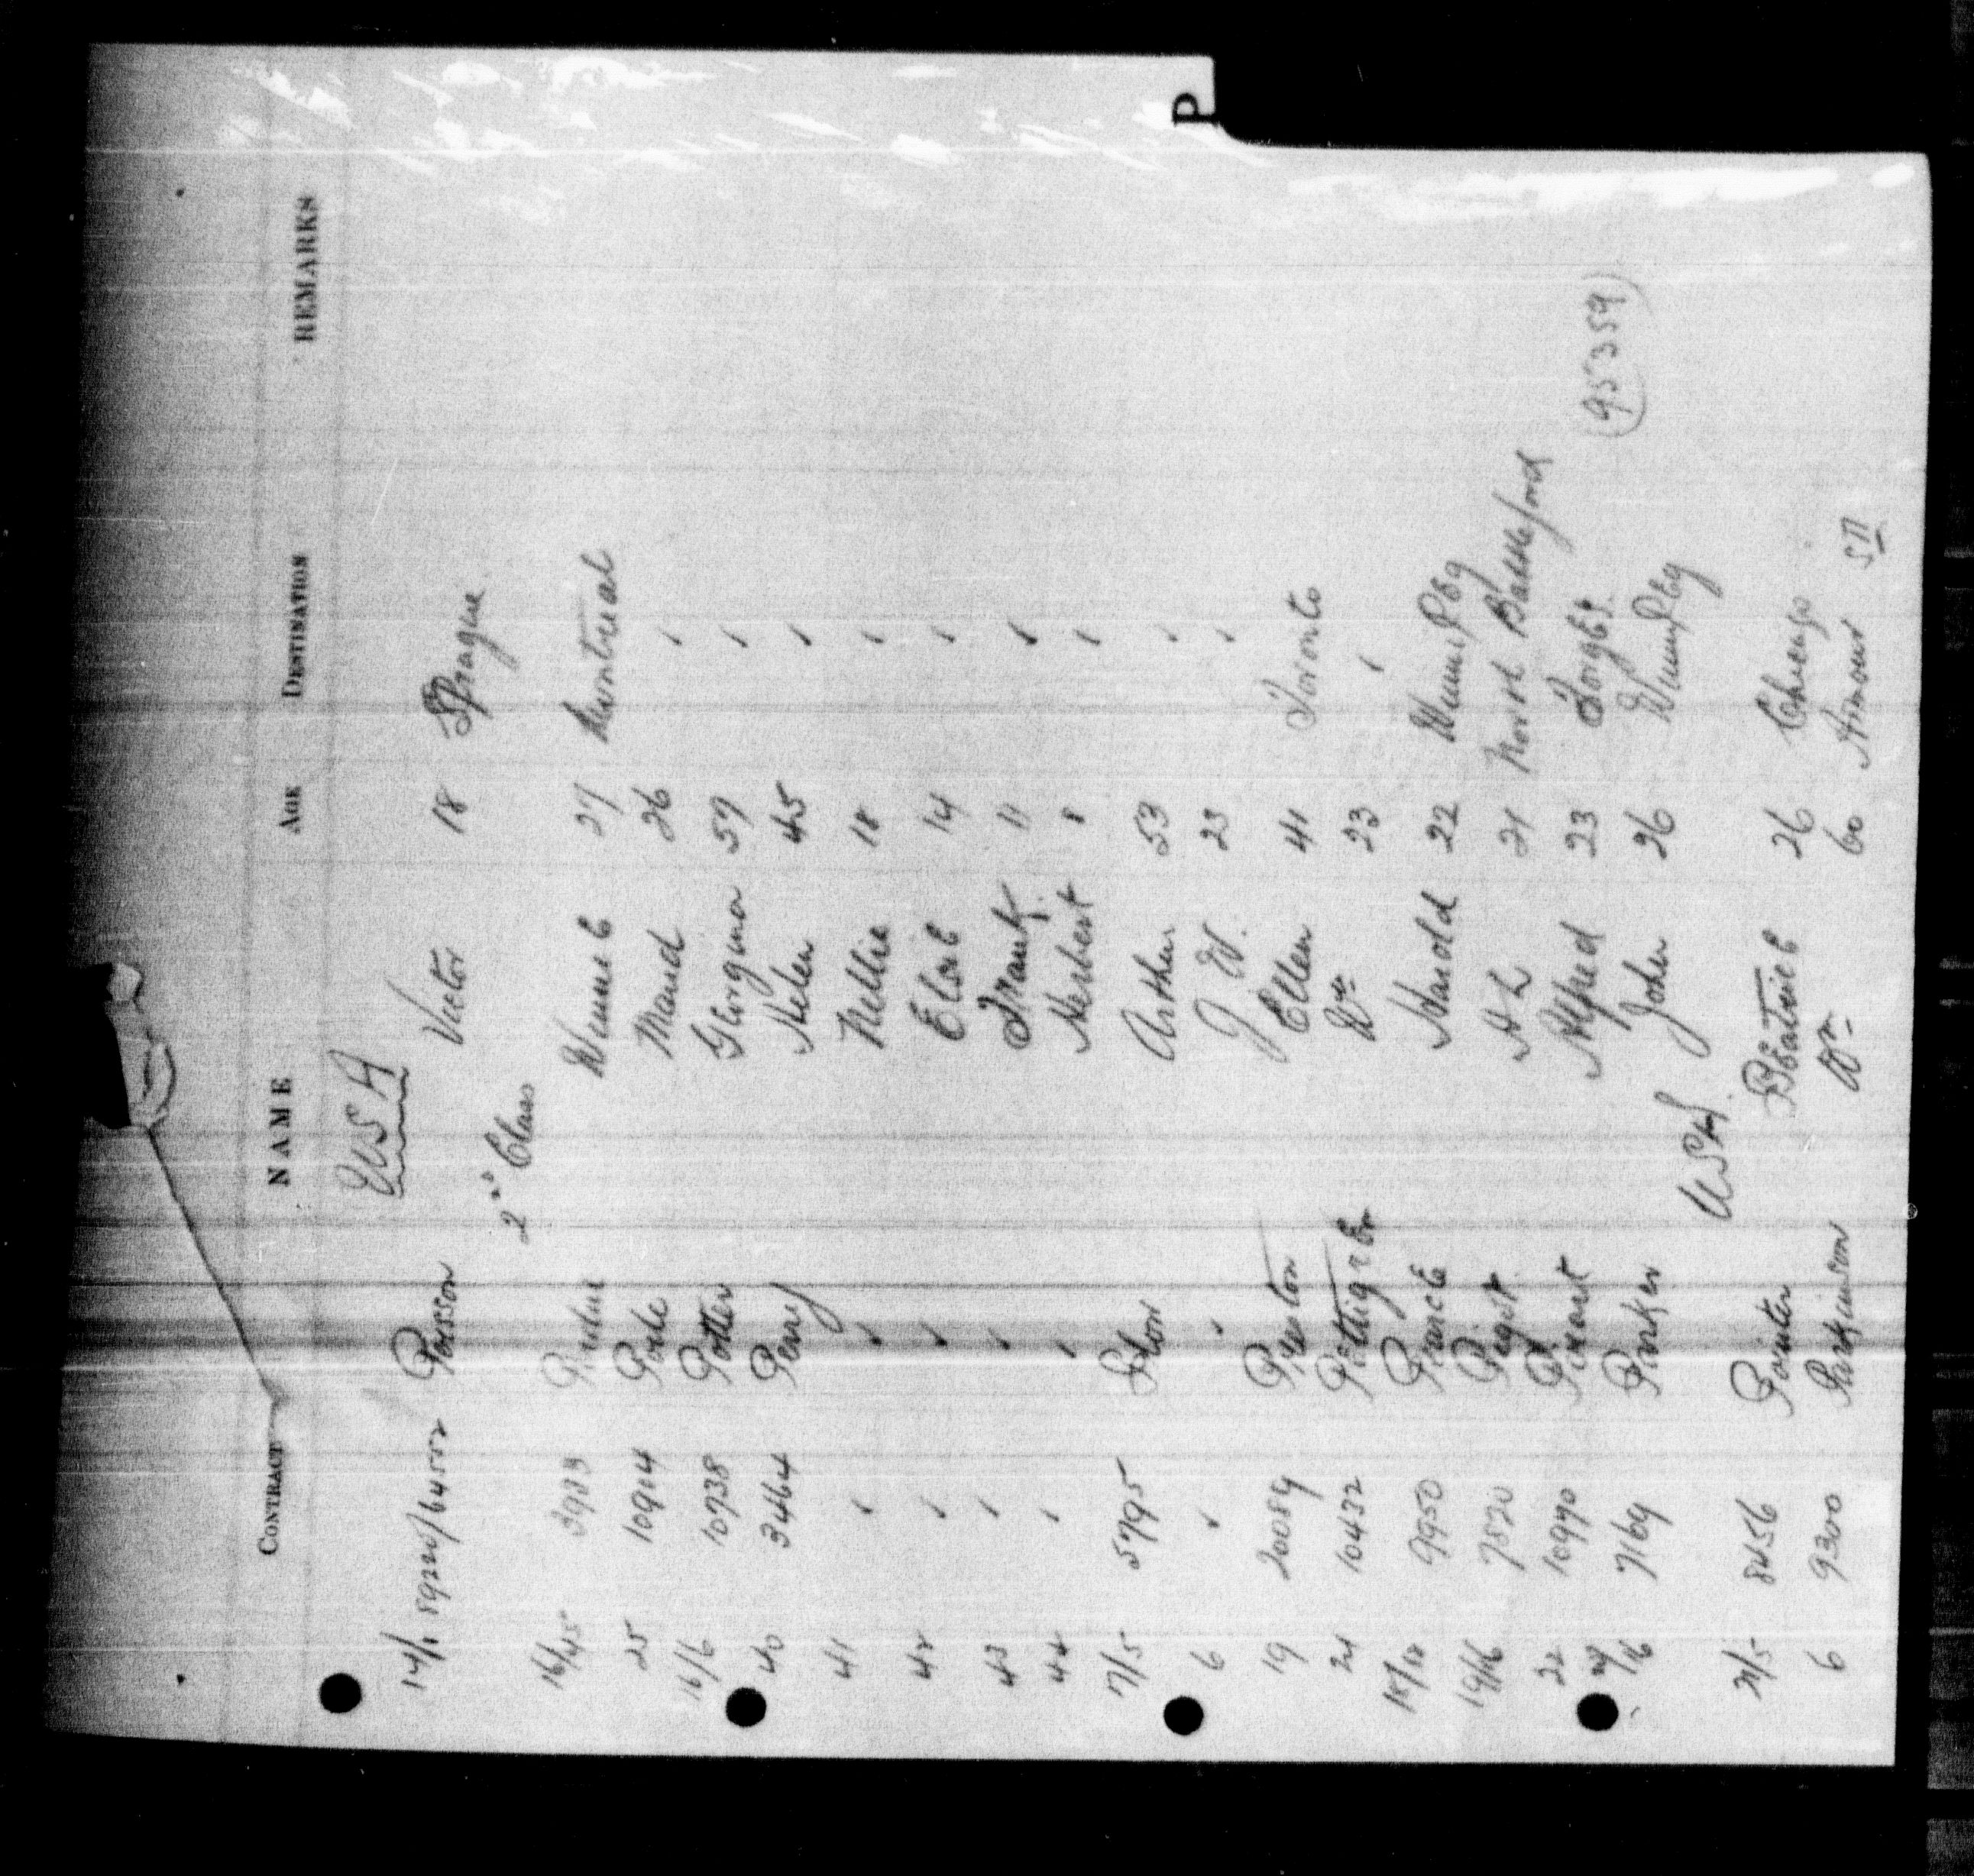 P
CONTRACT NAME AGE DESTINATION REMARKS
USA
14/1 59220/64552 Persson Victor 18 Sprague
2nd Class
16/45 3933 Perdue 27 Montreal
25 10914 Poole Maud 26 ✓
16/6 10938 Potter Georgina 57 ✓
40 3464 Percy Helen 45 ✓
41 ✓ ✓ Nellie 18 ✓
42 ✓ ✓ Elsie 14 ✓
43 ✓ ✓ Frank 11 ✓
44 ✓ ✓ Herbert 8 ✓
17/5 5795 Arthur 53 ✓
6 ✓ ✓ J W. 23 ✓
19 20089 Preston Ellen 41 Toronto
24 10432 Pettigrew Wm 23 ✓
18/18 9950 Pearce Harold 22 Winnipeg
19/16 7820 Pegot H L 21 North Battleford
22 10970 Alfred 23 (95359)
7169 Parker John 26 Winnipeg
USA
21/5 8456 Pointer Beatrice 26 Chicago
6 9300 Parkinson Wm 60 Armour SD